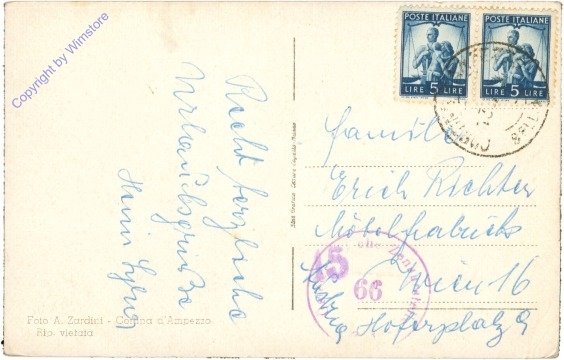 Copyright by Wimstore
POSTE ITALIANE
LIRE 5 LIRE
POSTE ITALIANE
LIRE 5 LIRE
Recht herzliche
Urlaubsgrüße
Familie
Erich Richter
Möbelfabrik
Wien 16
Hoferplatz 9
Austria
66
Foto A. Zardini - Cortina d'Ampezzo
Rip. vietata